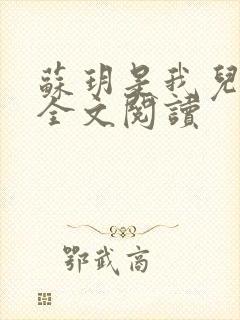 蘇玥是我兒
全文閱讀
鄂武商